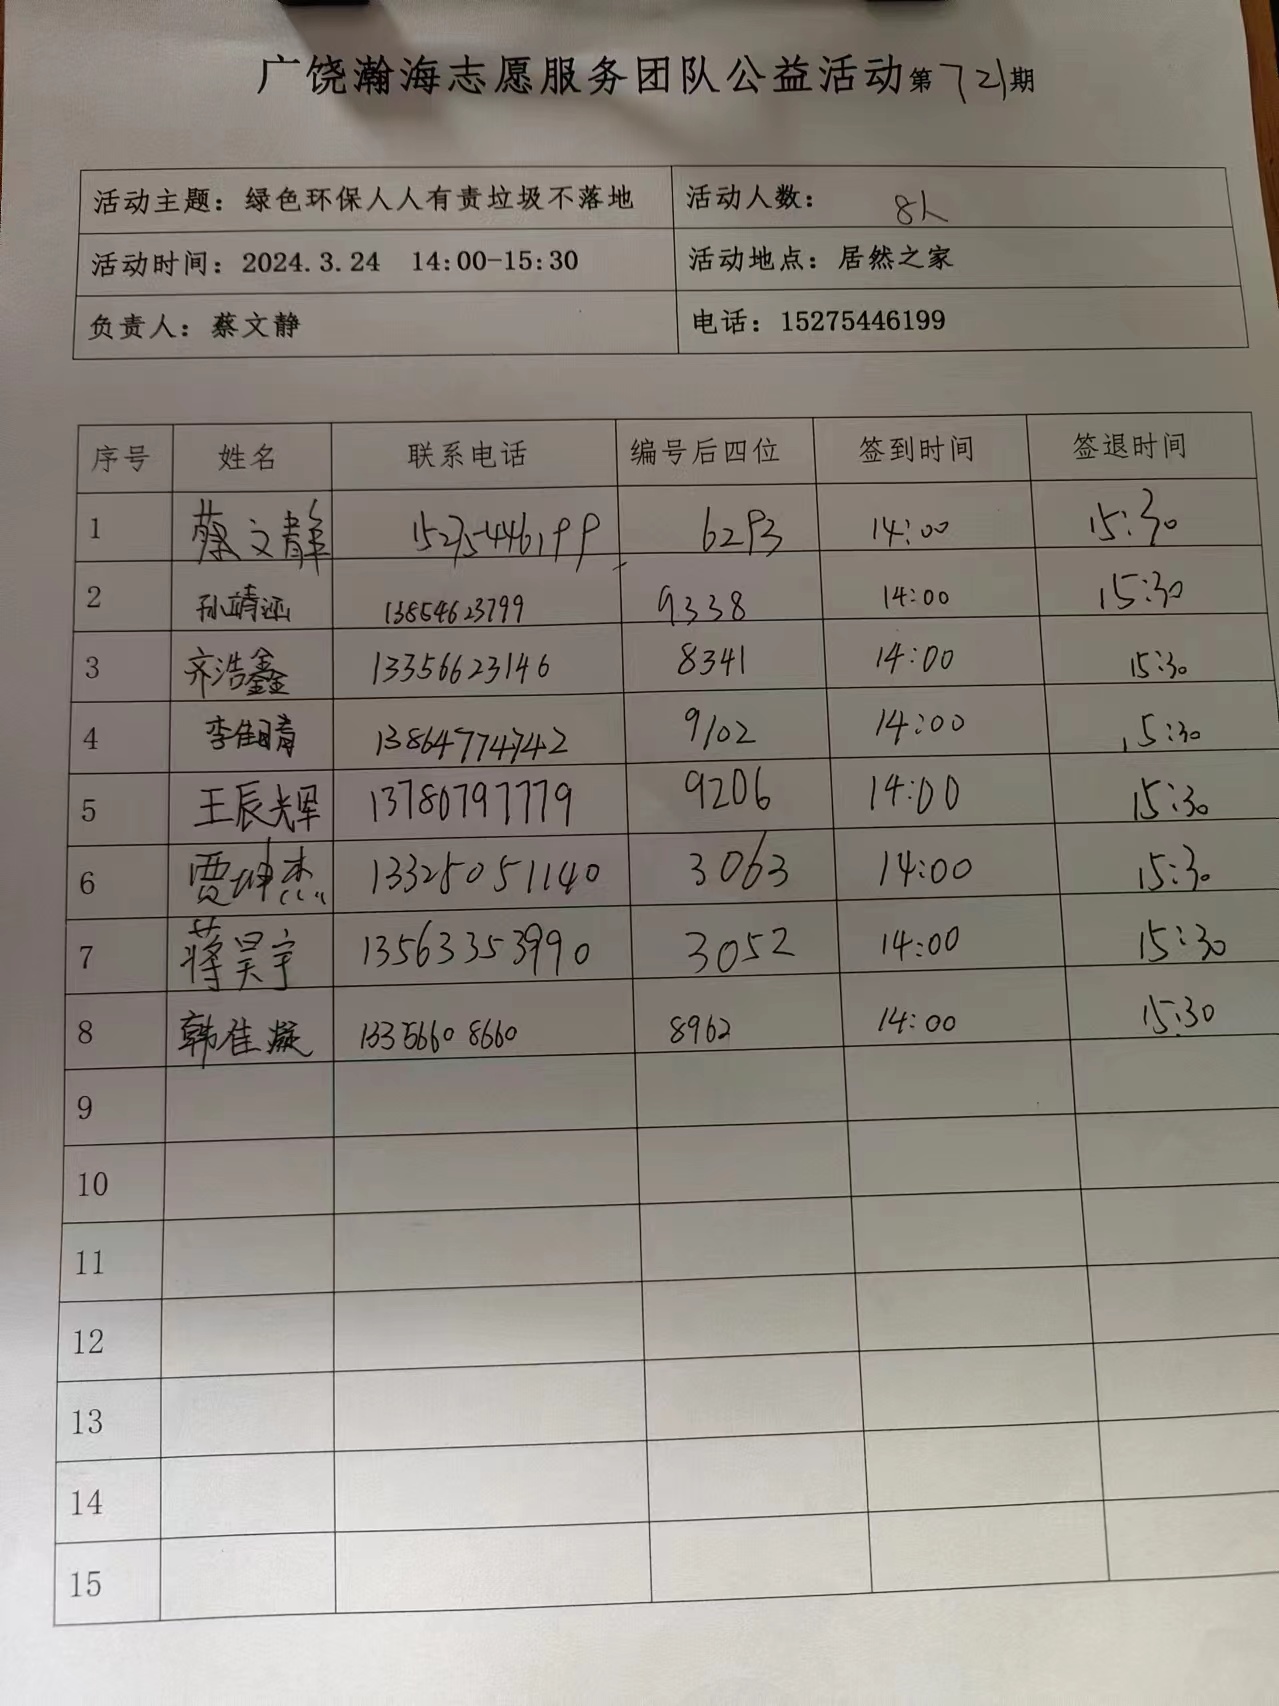 广饶瀚海志愿服务团队公益活动第721期
活动主题：绿色环保人人有责垃圾不落地 活动人数： 8人
活动时间：2024.3.24 14:00-15:30 活动地点：居然之家
负责人：蔡文静 电话：15275446199
序号 姓名 联系电话 编号后四位 签到时间 签退时间
1 蔡文静 15275446199 6293 14:00 15:30
2 孙靖涵 13854623799 9338 14:00 15:30
3 齐浩鑫 13356623146 8341 14:00 15:30
4 李佳晴 13864774742 9102 14:00 15:30
5 王辰辉 13780797779 9206 14:00 15:30
6 贾坤杰 13325051140 3063 14:00 15:30
7 蒋昊宇 13563353990 3052 14:00 15:30
8 韩佳凝 13356608660 8962 14:00 15:30
9
10
11
12
13
14
15